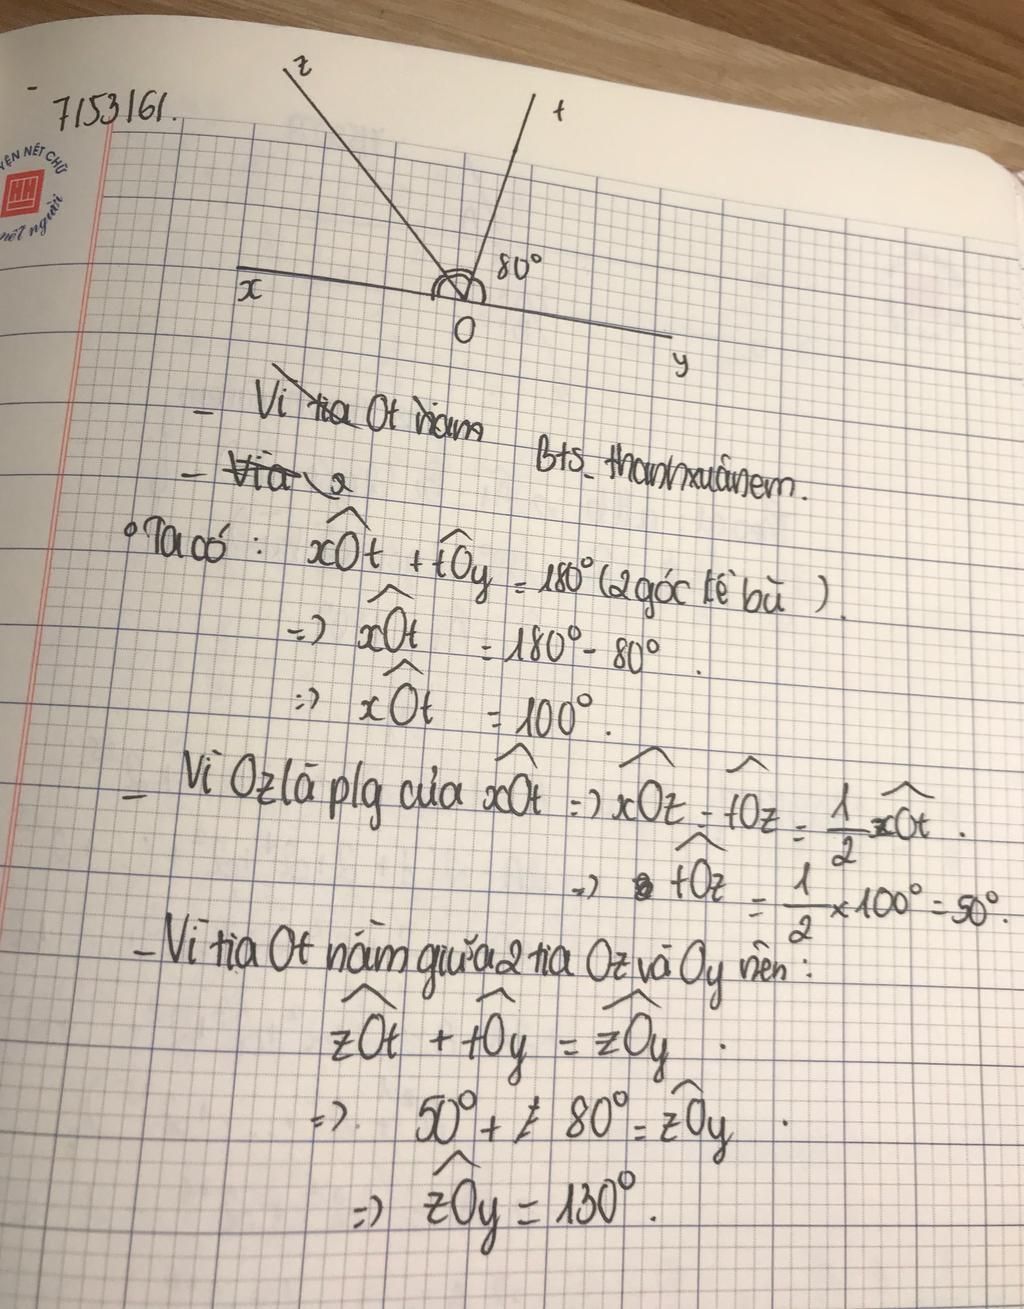 7153161.
z
t
80°
x
O
y
YỆN NÉT CHỮ
HH
nết người
- Vì tia Ot nằm
Bts_thanhxuânem.
- Vì a
Ta có : xÔt + tÔy = 180° (2 góc kề bù)
=> xÔt = 180° - 80°.
=> xÔt = 100°.
- Vì Oz là plg của xÔt => xÔz = tÔz = 1/2 xÔt.
=> tÔz = 1/2 x 100° = 50°.
- Vì tia Ot nằm giữa 2 tia Oz và Oy nên :
zÔt + tÔy = zÔy.
=> 50° + 80° = zÔy.
=> zÔy = 130°.